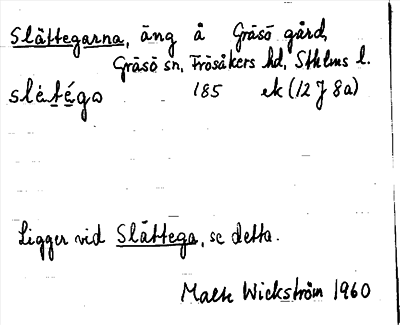 Slättegarna, äng å Gräsö gård,
Gräsö sn, Frösåkers hd, Sthlms l.
slètégα 185 ek (12 J 8a)
Ligger vid Slättega, se detta.
Malte Wickström 1960